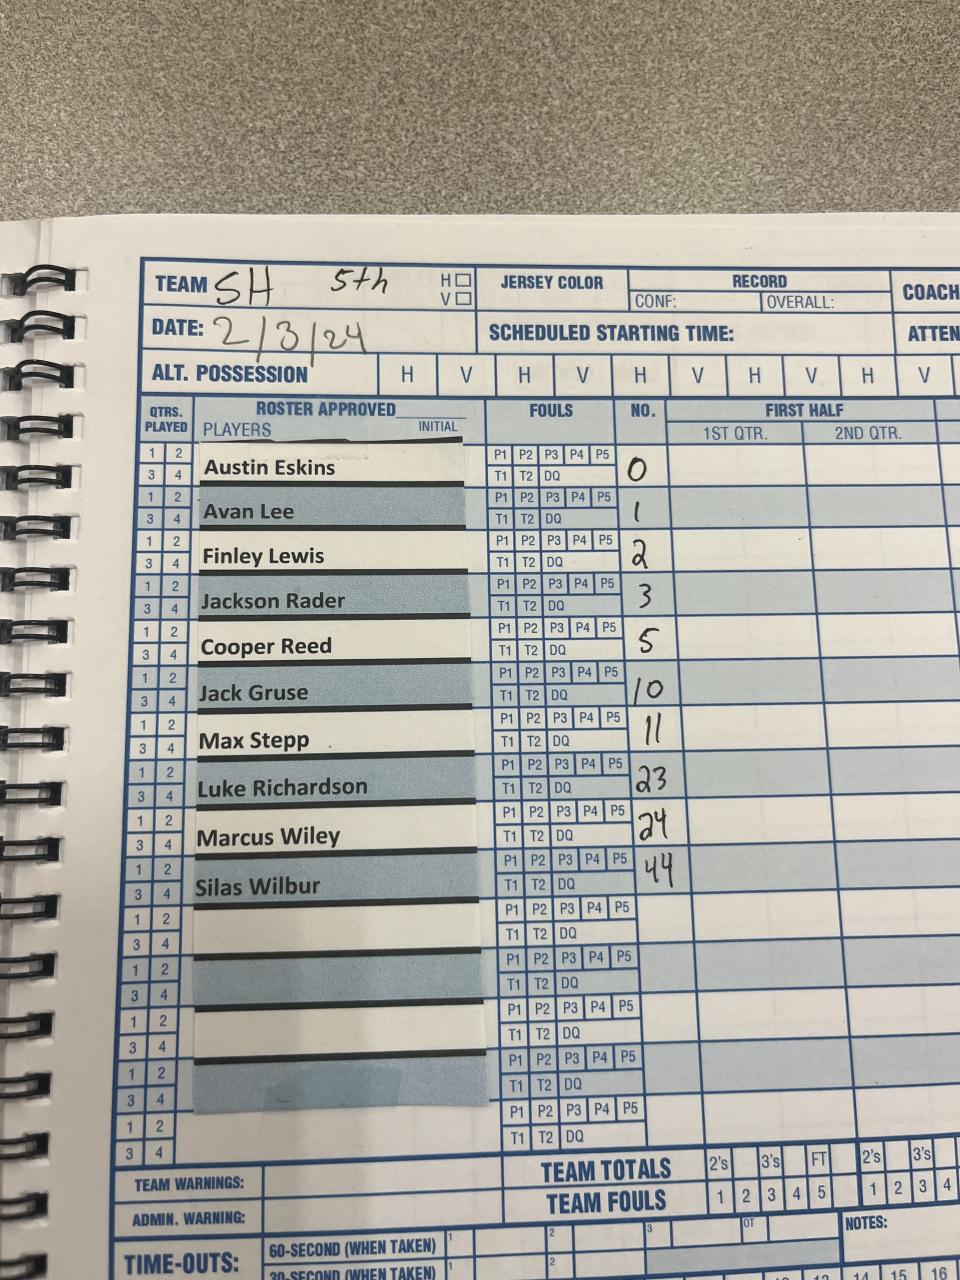 TEAM SH 5th H V
JERSEY COLOR
RECORD
CONF: OVERALL:
COACH
DATE: 2/3/24
SCHEDULED STARTING TIME:
ATTEN
ALT. POSSESSION H V H V H V H V H V
QTRS. PLAYED
ROSTER APPROVED
PLAYERS INITIAL
FOULS
NO.
FIRST HALF
1ST QTR. 2ND QTR.
1 2 P1 P2 P3 P4 P5
3 4 Austin Eskins T1 T2 DQ 0
1 2 P1 P2 P3 P4 P5
3 4 Avan Lee T1 T2 DQ 1
1 2 P1 P2 P3 P4 P5
3 4 Finley Lewis T1 T2 DQ 2
1 2 P1 P2 P3 P4 P5
3 4 Jackson Rader T1 T2 DQ 3
1 2 P1 P2 P3 P4 P5
3 4 Cooper Reed T1 T2 DQ 5
1 2 P1 P2 P3 P4 P5
3 4 Jack Gruse T1 T2 DQ 10
1 2 P1 P2 P3 P4 P5
3 4 Max Stepp T1 T2 DQ 11
1 2 P1 P2 P3 P4 P5
3 4 Luke Richardson T1 T2 DQ 23
1 2 P1 P2 P3 P4 P5
3 4 Marcus Wiley T1 T2 DQ 24
1 2 P1 P2 P3 P4 P5
3 4 Silas Wilbur T1 T2 DQ 44
1 2 P1 P2 P3 P4 P5
3 4 T1 T2 DQ
1 2 P1 P2 P3 P4 P5
3 4 T1 T2 DQ
1 2 P1 P2 P3 P4 P5
3 4 T1 T2 DQ
1 2 P1 P2 P3 P4 P5
3 4 T1 T2 DQ
1 2 P1 P2 P3 P4 P5
3 4 T1 T2 DQ
TEAM WARNINGS:
TEAM TOTALS 2's 3's FT 2's 3's
ADMIN. WARNING:
TEAM FOULS 1 2 3 4 5 1 2 3 4
TIME-OUTS:
60-SECOND (WHEN TAKEN) 1 2 3 OT
NOTES:
30-SECOND (WHEN TAKEN) 1 2
12 13 14 15 16